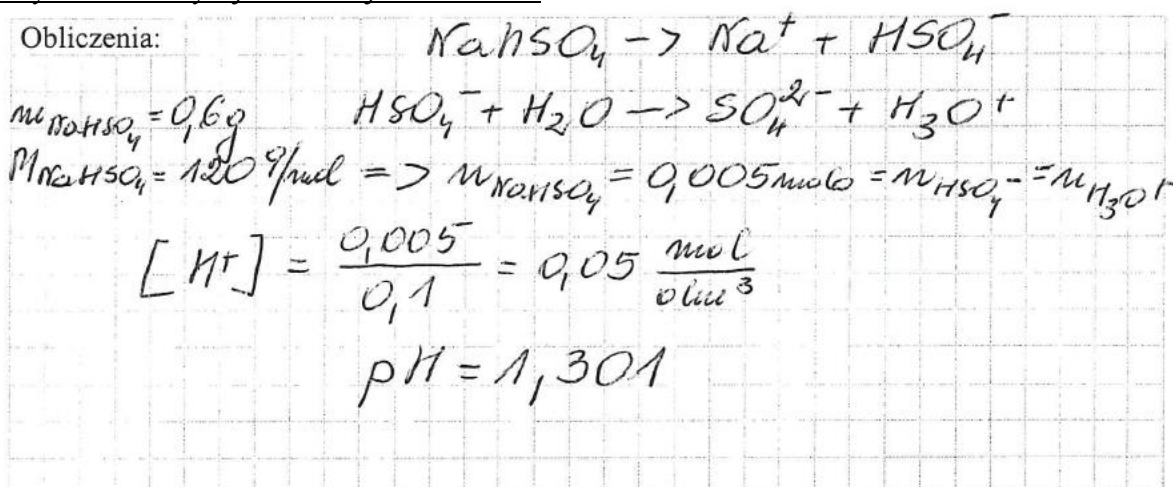 Obliczenia:
NaHSO₄ -> Na⁺ + HSO₄⁻
m NaHSO₄ = 0,6g HSO₄⁻ + H₂O -> SO₄²⁻ + H₃O⁺
M NaHSO₄ = 120 g/mol => n NaHSO₄ = 0,005 mola = n HSO₄⁻ = n H₃O⁺
[H⁺] = 0,005/0,1 = 0,05 mol/dm³
pH = 1,301